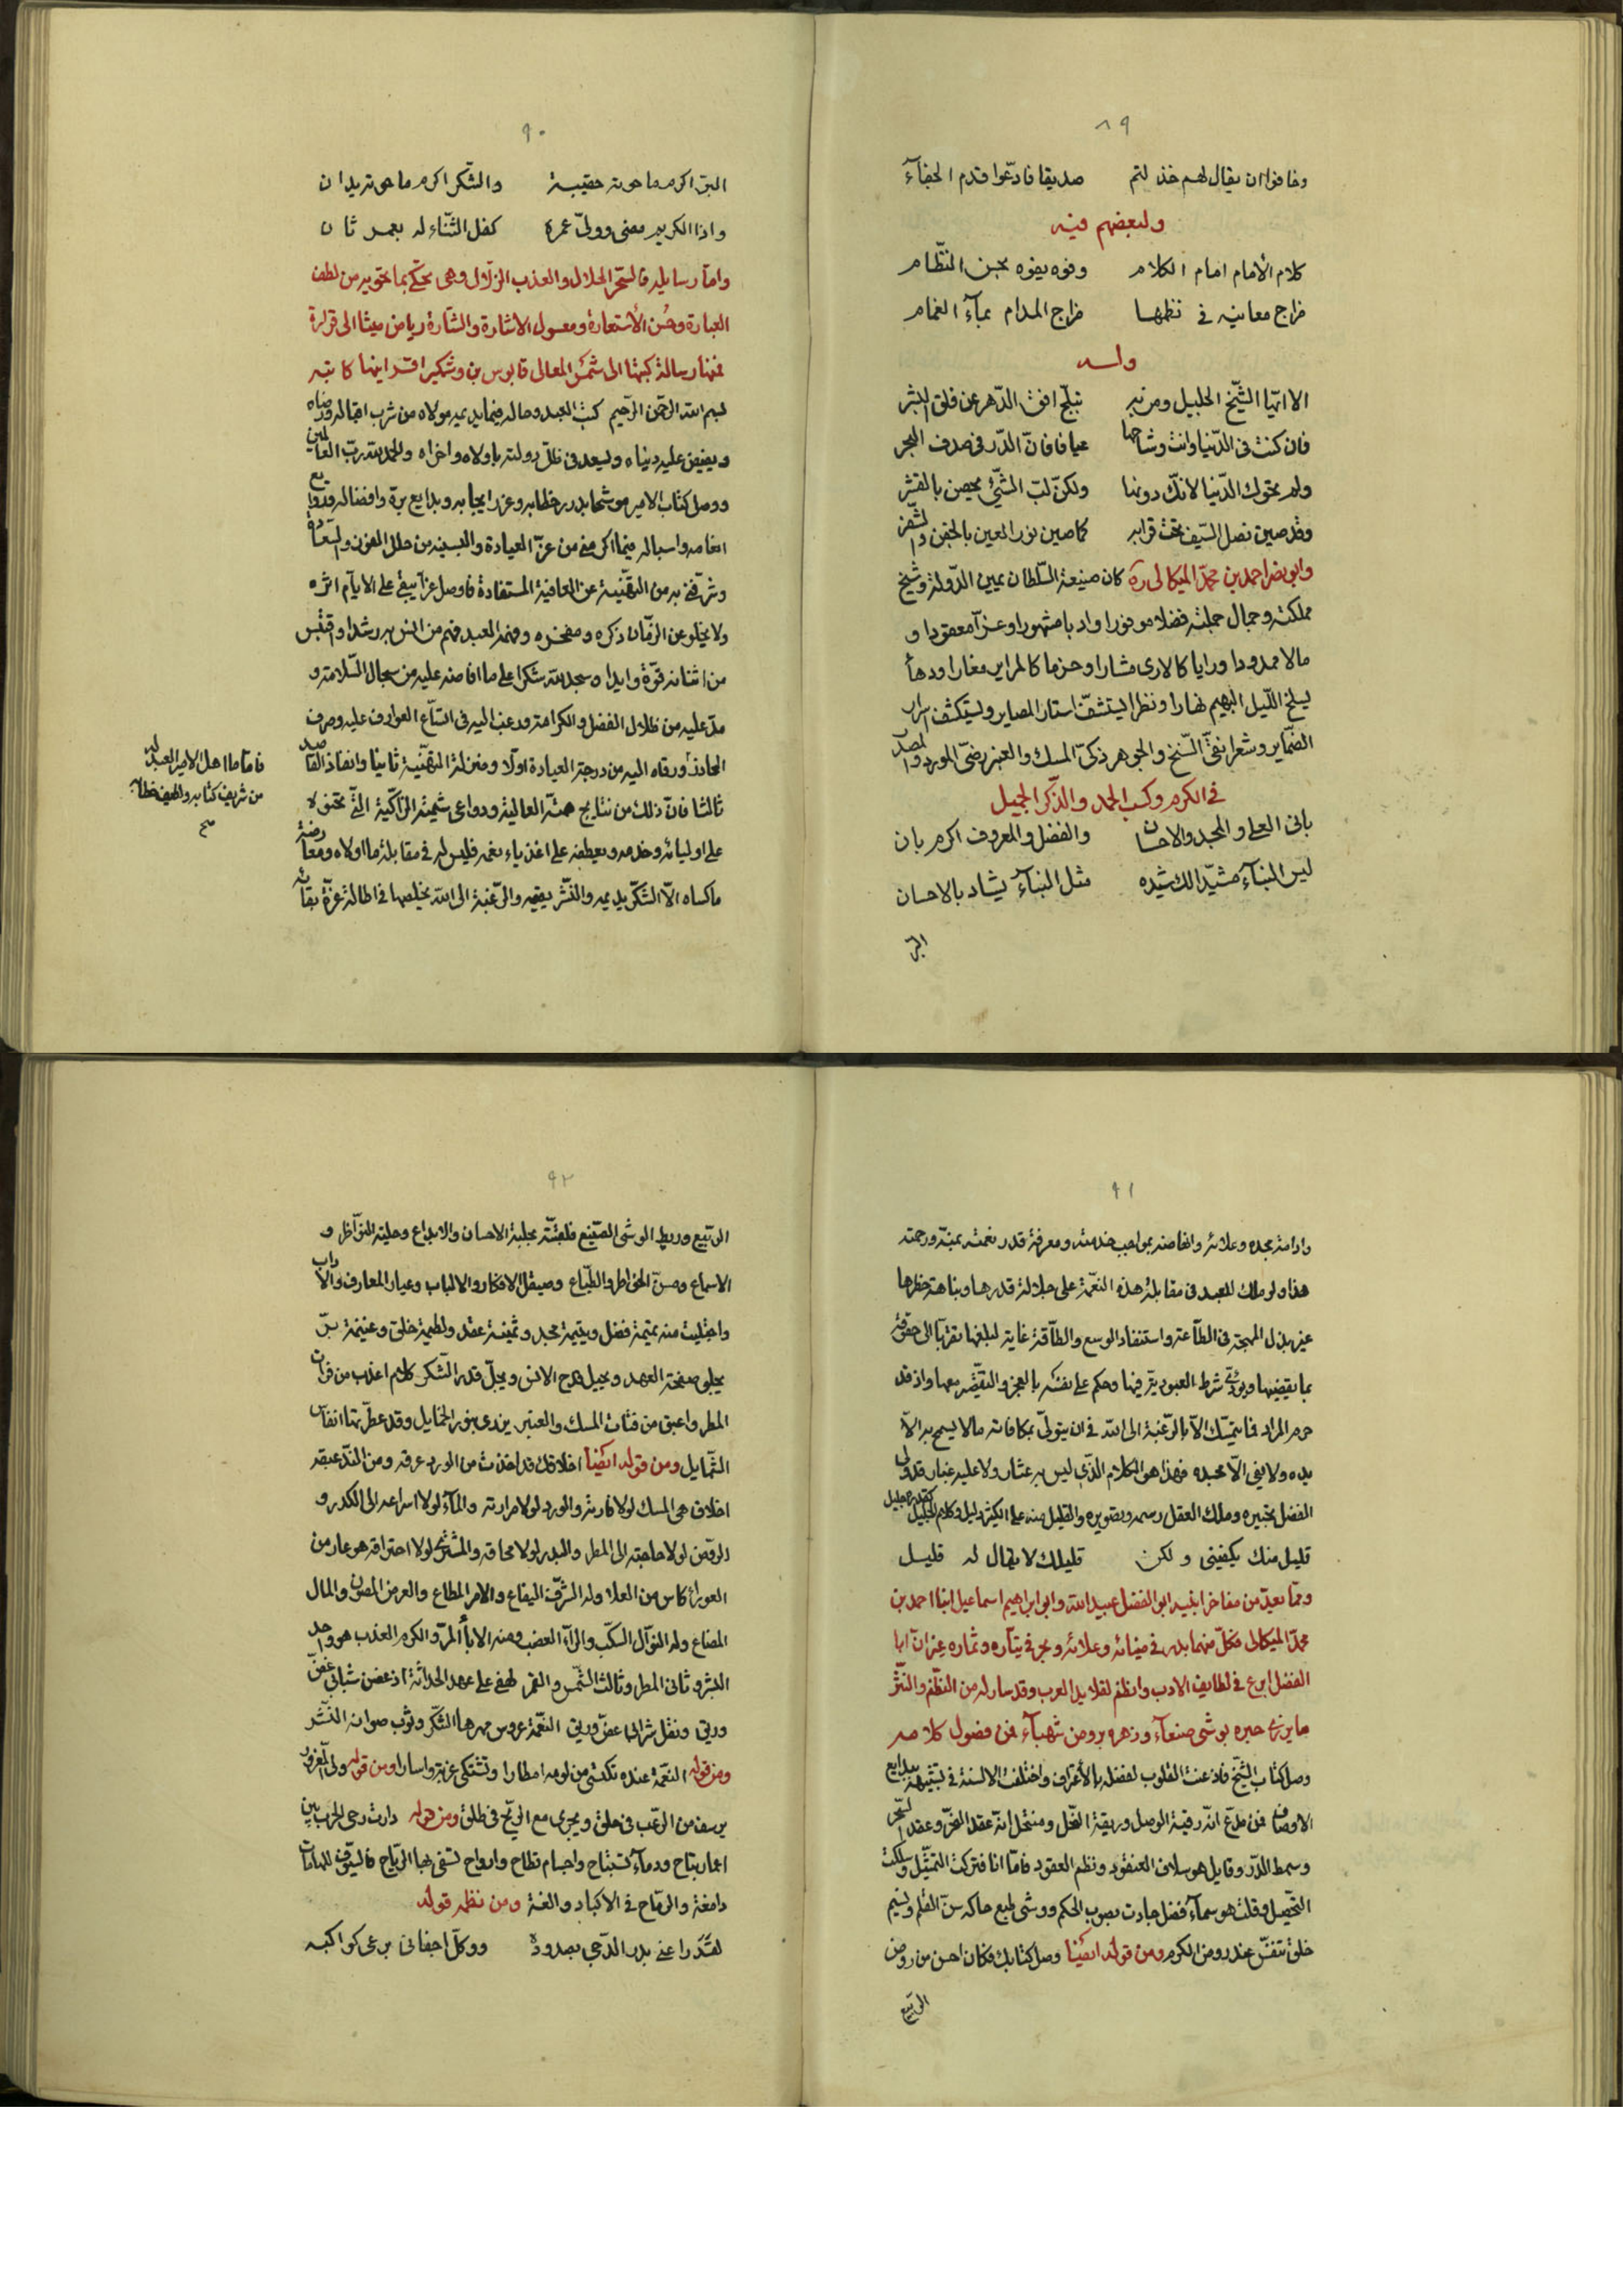 ٨٩
وخافوا ان يقال لهم خذلتم صديقا فادّعوا قدم الجفآء
ولبعضهم فيه
كلام الأمام امام الكلام وفوه يفوه بحسن النظّام
مزاج معانيه فى نظمها مزاج المدام بمآء الغمام
وله
الا ايّها الشّيخ الجليل ومن به تبلّج افق الدّهر عن فلق البشر
فان كنت فى الدّنيا وانت وشاحها عيانا فانّ الدّر فى صدف البحر
ولم تحوك الدّنيا لانّك دونها ولكنّ لبّ الشّئ يحصن بالقشر
وقد صين نصل السّيف تحت قرابه كما صين نور العين بالجفن والشّفر
وابى نصر احمد بن محمّد الميكالى ره كان صنيعة السّلطان يمين الدّولة وشيخ
مملكته وجمال جملته فضلا موفورا وادبا مشهورا وعزّا معقودا و
مالا ممدودا ورايا كالارى مشارا وحزما كالمراير مغارا ودهآء
يسلخ اللّيل البهيم نهارا ونظرا يستشفّ استار المصاير ويستكشف اسرار
الضّماير وشعرا نقىّ السّنخ والجوهر ذكىّ المسك والعنبر رضىّ المورد والمصدر
فى الكرم وكسب الحمد والذّكر الجميل
بانى العلى والمجد والاحسان والفضل والمعروف اكرم بان
ليس البنآء مشيّدا لك شيّده مثل البنآء يشاد بالاحسان
البرّ
٩٠
البرّ اكرم ما حوته حقيبة والشّكر اكرم ما حوته يدان
واذا الكريم مضى وولّى عمره كفل الثّناء له بعمر ثان
وامّا رسايله فالسّحر الحلال والعذب الزّلال وهى تحكّم بما تحويه من لطف
العبارة وحُسن الأستعارة ومعسول الاشارة والشّارة رياض ميثا الى قرارة
فمنها رسالة كتبها الى شمس المعالى قابوس بن وشمكير اقتدايها كاتبه
بسم الله الرّحمن الرّحيم كتب العبد وحاله فيما يديمه مولاه من شرب اقباله ورضاه
ويفيض عليه دنياه ويسعد فى ظلّ دولته باولاه واخراه والحمد لله ربّ العالمين
ووصل كتاب الامير موشحا بدرر خطابه وغرر ايجابه وبدايع برّه وافضاله وتوابع
انعامه واسباله فيما اكرمنى من عزّ العيادة والبسنيه من حلل العزّ والسّعادة
وشرّفنى به من التّهنية عن العافية المستفادة فاوصل عزّا يبقى على الايّام اثره
ولا يخلو عن الزّمان ذكره ومفخره وفهمه العبد فهم من انس به رشدا واقتبس
من اثنائه قوّة وايدا وسجد لله شكرا على ما افاضه عليه من سجال السّلامة و
مدّ عليه من ظلال الفضل والكرامة ورغب اليه فى اتّساع العوارف عليه وصرف
الحاذر ورقاه اليه من درجة العيادة اوّلا ومنزلة التّهنية ثانيا وانفاذ القاصد
ثالثا فانّ ذلك من نتايج همّته العالية ودواعى شيمته الزّاكية الّتى تحنو لا
على اوليائه وخدمه ويعطفه على اغذياء نعمه فليس له فى مقابلة ما اولاه ومعارضة
ما كساه الاّ الشّكر يديمه والنّشر يقيمه والرّغبة الى الله يخلصها فى اطالة عزّة بقائه
فامّا ما اهل الامير العبد له
من شريف كتابه ولطيف خطابه
صح
٩١
وادامة مجده وعلائه وانهاضه بمواجب خدمته ومعرفة قدر نعمته بمنّه ورحمته
هذا ولو ملك العبد فى مقابلة هذه النّعمة على جلالة قدرها ونباهة خطرها
غير بذل المهجة فى الطّاعة واستنفاد الوسع والطّاقة غاية لبلغها تقرّبا الى حقوقه
بما يقضيها ويودّى شرط العبوديّة فيها وحكم على نفسه بالعجز والتقصّير معها واذ قد
حرم المراد فما يتمسّك الاّ بالرّغبة الى الله فى ان يتولّى مكافاته مالا يسمح به الاّ
يده ولا يفى الاّ مجده فهذا هو الكلام الّذى ليس به عثار ولا عليه غبار قد ولى
الفضل تحبيره وملك العقل رسمه وتصويره والقليل منه على الكثير دليل وكلام الجليل كقدره جليل
قليل منك يكفينى ولكن قليلك لا يقال له قليل
وممّا يعدّ من مفاخر ابنيه ابو الفضل عبيد الله وابو ابراهيم اسماعيل ابنا احمد بن
محمّد الميكالى فكلّ منهما بدر فى ضيائه وعلائه وبحر فى تيّاره وثماره غير انّ ابا
الفضل ابرع فى لطايف الادب وانظم لقلايد العرب وقد سار له من النّظم والنّثر
ما يزرى حبره بوشى صنعآء وزهره بروض شهبآء فمن فصول كلامه
وصل كتاب الشّيخ فاذعنت القلوب لفضله بالأعتراف واختلفت الالسنة فى تشبيهه ببدايع
الاوصاف فمن مدّع انّه رقية الوصل وريقة النّحل ومنتحل انّه عقد النّحر وعقد السّحر
وسمط الدّر وقايل هو سلاف العنقود ونظم العقود فامّا انا فتركت التمثّيل وسلكت
التّحصيل وقلت هو سمآء فضل جادت بصوب الحكم ووشى طبع حاكه سنّ القلم ونسيم
خلق تنفّس عنه روض الكرم ومن قوله ايضًا وصل كتابك فكان احسن من روض
الرّبيع
٩٢
الرّبيع وربط الوشى الصّنيع فلعثّته بحلبة الاحسان والابداع وحلية النّواظر و
الاسماع ومسنّ الخواطر والطّباع وصيقل الافكار والالباب وعيار المعارف والاداب
واجتليت منه تميمة فضل ويتيمة مجد وثمينة عقد ولطيمة خلق وغنيمة برّ
يجلو صفحة العهد ويجيل قدح الانس ويجلّ قدر الشّكر كلام اعذب من فرات
المطر واعبق من فتات المسك والعنبر يزرى بنور الخمايل وقد عطّرتها انفاس
الشّمايل ومن قوله ايضًا اخلاقك قد اخذت من الورد عرفه ومن النّد عبقه
اخلاق هى المسك لولا فارته والورد لولا مرارته والمآء لولا اسراعه الى الكدر و
الرّوض لولا حاجته الى المطر والبدر لولا محاقه والمشترى لولا احتراقه هو عار من
العوراء كاس من العلا وله الشّرف اليفاع والامر المطاع والعرض المصون والمال
المضاع وله النّوال السّكب والرّآء العضب ومنه الاباء المرّ والكرم العذب هو واحد
البشر وثانى المطر وثالث الشّمس والقمر لهفى على عهد الحداثة اذ غصن شبابى غضّ
وريق ونقل شرابى عضّ وريق النّعمة عروس مهرها الشّكر وثوب صوانه النّشر
ومن قوله النّعمة عنده تكتسى من لومه اطمارا وتشتكى غربة واسارا ومن قوله ولّى المغرور
يرسف من الرّعب فى حلق ويجرى مع الرّيح فى طلق ومن قوله دارت رحى الحرب بين
اعمار تباح ودمآء تستباح واجسام تطاح وارواح تسفى بها الرّياح فالسّيوف للهامات
دامغة والرّماح فى الاكباد والغة ومن نظمه قوله
لقد راعنى بدر الدّجى بصدوده ووكّل اجفانى برعى كواكبه